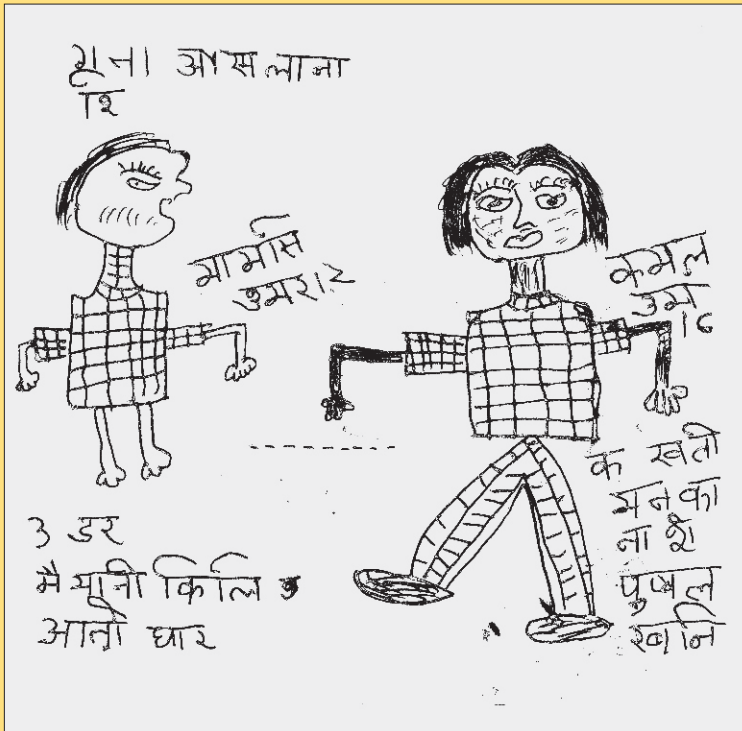 गूना आसलाना
शि
मार्मसि
उमर 12
कमल
उम्र
16
क खतो
मन का
ना शे
पुष्पल
खनि
3 डर
मै मानी किलि
आतो घार